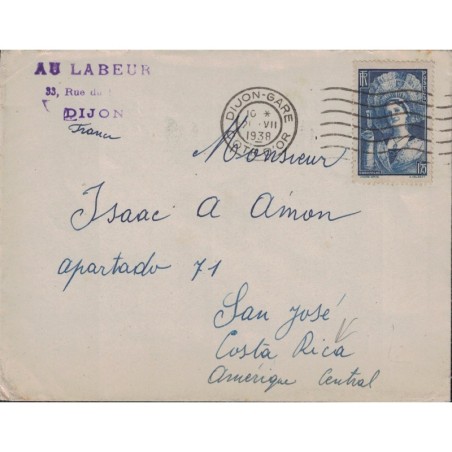 AU LABEUR
33, Rue de
DIJON
France
DIJON-GARE
VII
1938
CÔTE-D'OR
RF
1f75
Monsieur
Isaac A Amon
apartado 71
San José
Costa Rica
Amérique Central